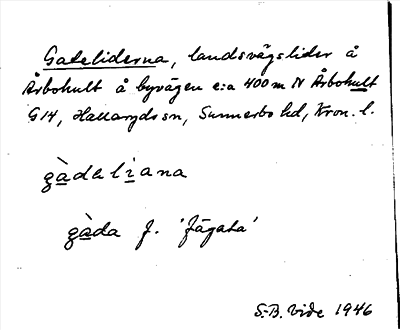 Gateliderna, landsvägslider å
Årbohult å byvägen c:a 400 m N Årbohult
G14, Hallaryds sn, Sunnerbo hd, Kron. l.
gàdaliana
gàda f. 'fägata'
S.-B. Vide 1946